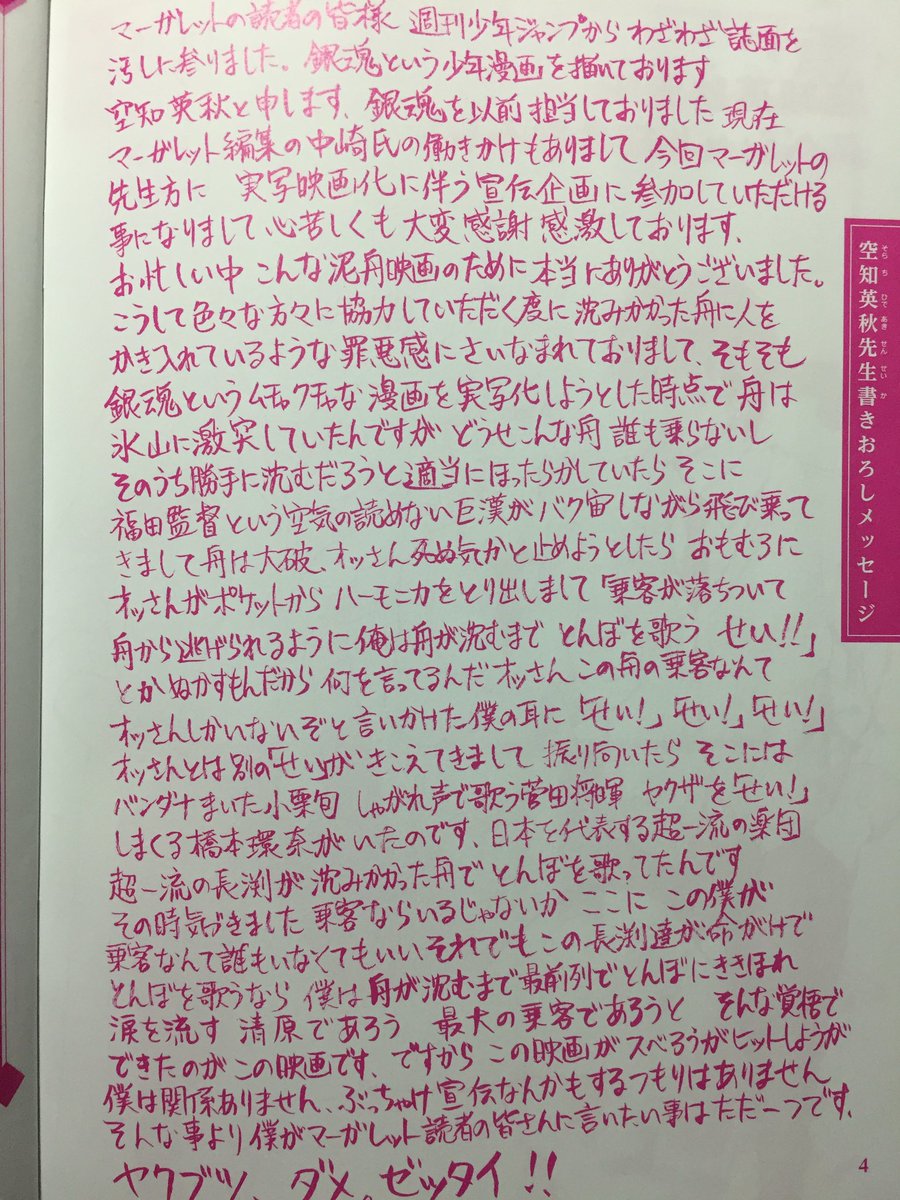 マーガレットの読者の皆様 週刊少年ジャンプから わざわざ誌面を
汚しに参りました。銀魂という少年漫画を描いております
空知英秋と申します、銀魂を以前担当しておりました 現在
マーガレット編集の中崎氏の働きかけもありまして 今回マーガレットの
先生方に 実写映画化に伴う宣伝企画に参加していただける
事になりまして 心苦しくも 大変感謝 感激しております、
お忙しい中 こんな泥舟映画のために本当にありがとうございました。
こうして色々な方々に協力していただく度に 沈みかかった舟に人を
かき入れているような罪悪感にさいなまれておりまして、そもそも
銀魂というムチャクチャな漫画を実写化しようとした時点で 舟は
氷山に激突していたんですが どうせこんな舟 誰も乗らないし
そのうち勝手に沈むだろうと適当にほったらかしていたら そこに
福田監督という空気の読めない巨漢がバク宙しながら飛び乗って
きまして 舟は大破、オッさん死ぬ気かと止めようとしたら おもむろに
オッさんがポケットから ハーモニカをとり出しまして「乗客が落ちついて
舟から逃げられるように俺は舟が沈むまで とんぼを歌う せい!!」
とかぬかすもんだから 何を言ってるんだオッさん この舟の乗客なんて
オッさんしかいないぞと言いかけた僕の耳に「せい!」「せい!」「せい!」
オッさんとは別の「せい」がきこえてきまして 振り向いたら そこには
バンダナまいた小栗旬 しゃがれ声で歌う菅田将暉 ヤクザを「せい!」
しまくる橋本環奈がいたのです、日本を代表する超一流の楽団
超一流の長渕が沈みかかった舟で とんぼを歌ってたんです
その時気づきました 乗客ならいるじゃないか ここに この僕が
乗客なんて誰もいなくてもいい それでもこの長渕達が命がけで
とんぼを歌うなら 僕は舟が沈むまで最前列でとんぼにききほれ
涙を流す 清原であろう 最大の乗客であろうと そんな覚悟で
できたのがこの映画です、ですから この映画がスベろうがヒットしようが
僕は関係ありません、ぶっちゃけ宣伝なんかもするつもりはありません
そんな事より僕がマーガレット読者の皆さんに言いたい事はただ一つです、
ヤクブツ、ダメ。ゼッタイ!!
空知英秋先生書きおろしメッセージ
そらちひであきせんせいか
4